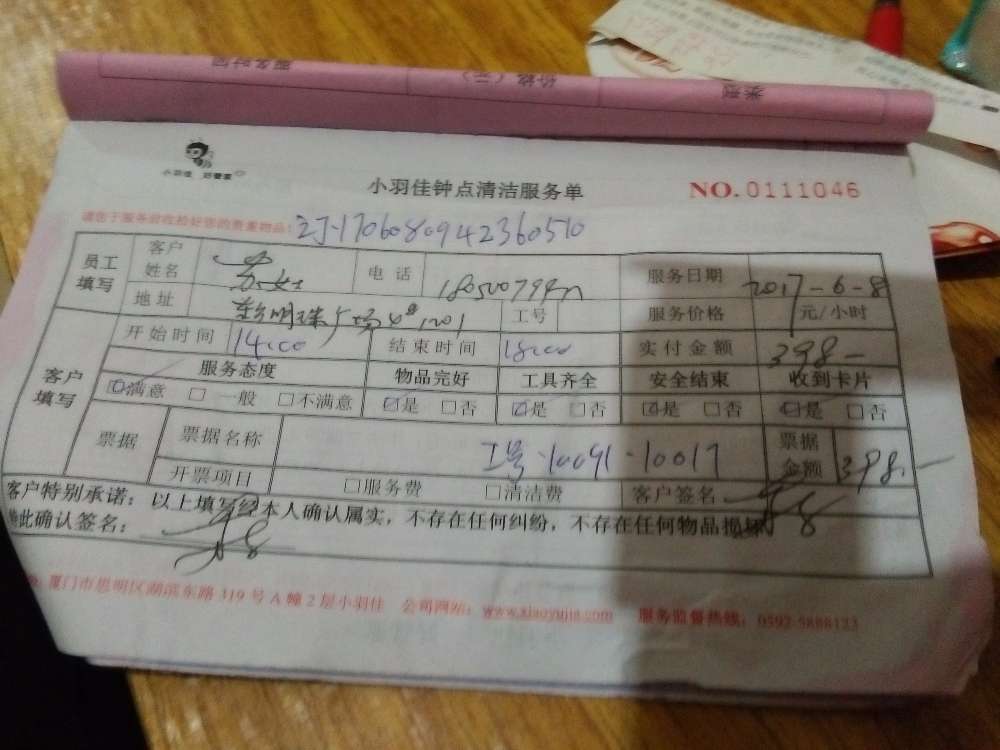 服务时间 价格(元) 类型
小羽佳 好管家
小羽佳钟点清洁服务单
NO.0111046
请您于服务前收拾好您的贵重物品:
ZJ-1706080942360510
员工填写 客户姓名 苏女士 电话 服务日期 2017-6-8
地址 明珠广场 1201 工号 服务价格 元/小时
客户填写 开始时间 14:00 结束时间 18:00 实付金额 398-
服务态度 物品完好 工具齐全 安全结束 收到卡片
☑满意 □一般 □不满意 ☑是 □否 ☑是 □否 ☑是 □否 ☑是 □否
票据 票据名称 工号·10091·10017 票据金额 398.-
开票项目 □服务费 □清洁费 客户签名
客户特别承诺:以上填写经本人确认属实,不存在任何纠纷,不存在任何物品损坏,
特此确认签名:
厦门市思明区湖滨东路 319 号 A 幢 2 层小羽佳 公司网站:www.xiaoyujia.com 服务监督热线:0592-5888123